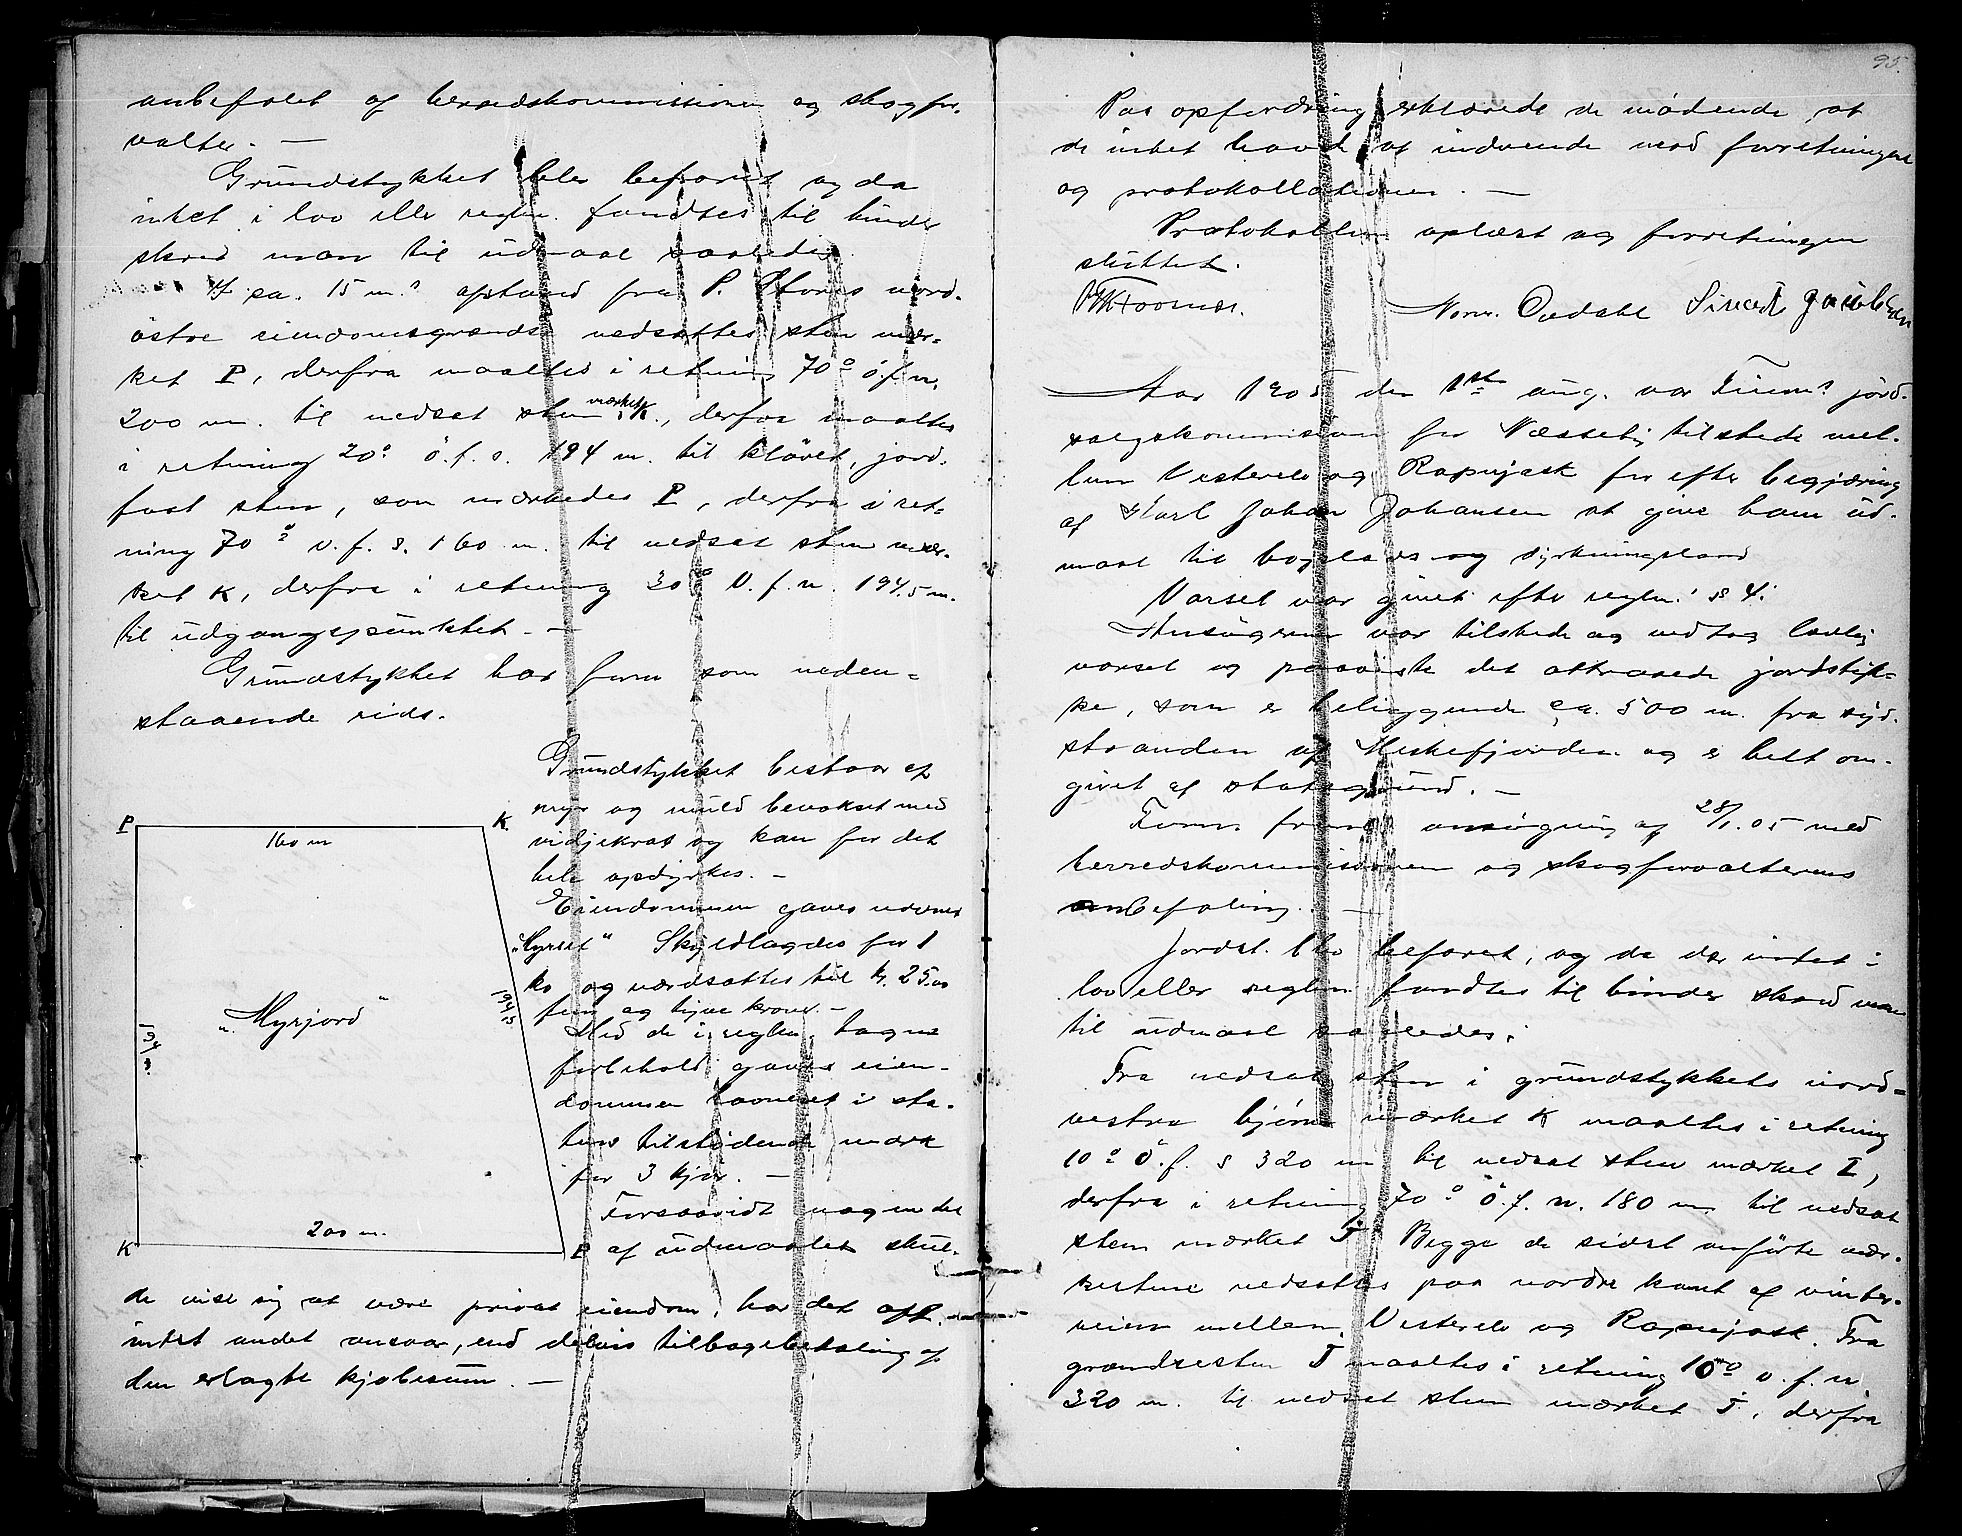 anbefalet af herredskommissionen og skogfor-
valter. —
Grundstykket blev befaret og da
intet i lov eller reglm. fandtes til hinder
skred man til udmaal saaledes:
I ca. 15 m.s afstand fra P. Hovos nord-
östre eiendomsgrændse nedsattes sten mær-
ket P, derfra maaltes i retning 70° ö.f.n.
200 m. til nedsat sten mærket K., derfra maaltes
i retning 20° ö.f.s. 194 m. til klövet, jord-
fast sten, som mærkedes P, derfra i ret-
ning 70° v.f.s. 160 m. til nedsat sten mær-
ket K, derfra i retning 30° V.f.n. 194.5 m.
til udgangspunktet. —
Grundstykket har form som neden-
staaende rids.
Grundstykket bestaar af
myr og muld bevokset med
vidjekrat og kan for det
hele opdyrkes. —
Eiendommen gaves navnet
"Myrset" Skyldlagdes for 1
ko og værdsattes til kr. 25.00
fem og tyve kroner. —
Med de i reglm. tagne
forbehold gaves eien-
dommen havneret i sta-
tens tilstødende mark
for 3 kjör. —
Forsaavidt nogen del
af udmaalet skul-
P
160 m
K.
194.5
"Myrjord"
194
K
200 m.
P
de vise sig at være privat eiendom, har det off.
intet andet ansvar, end delvis tilbagebetaling af
den erlagte kjøbesum. —
95.
Paa opfordring erklærede de mødende, at
de intet havde at indvende mod forretningen
og protokollationen. —
Protokollen oplæst og forretningen
sluttet.
Norm. Oedahl Sivert Jakobsen
Aar 1905 den 1ste aug. var Finm.s jord-
salgskommission for Næsseby tilstede mel-
lem Vesterelv og Rapnjask for efter begjæring
af Karl Johan Johansen at give ham ud-
maal til boplads og dyrkningsland
Varsel var givet efter reglm.s § 4.
Ansögeren var tilstede og vedtog lovlig
varsel og paaviste det attraaede jordstyk-
ke, som er beliggende ca. 500 m. fra syd-
stranden af Meskefjorden og er helt om-
givet af statsgrund. —
Form. freml. ansögning af 28/1.05 med
herredskommissionen og skogforvalterens
anbefaling. —
Jordst. blev befaret, og da der intet i
lov eller reglm. fandtes til hinder skred man
til udmaal saaledes:
Fra nedsat sten i grundstykkets nord-
vestre hjörne mærket K maaltes i retning
10° Ö.f.s 320 m til nedsat sten mærket I,
derfra i retning 70° ö.f.n. 180 m til nedsat
sten mærket J. Begge de sidst anførte mær-
kestene nedsattes paa nordre kant af vinter-
veien mellem Vesterelv og Rapnjask. Fra
grændsesten J maaltes i retning 10° v.f.n.
320 m. til nedsat sten mærket J, derfra